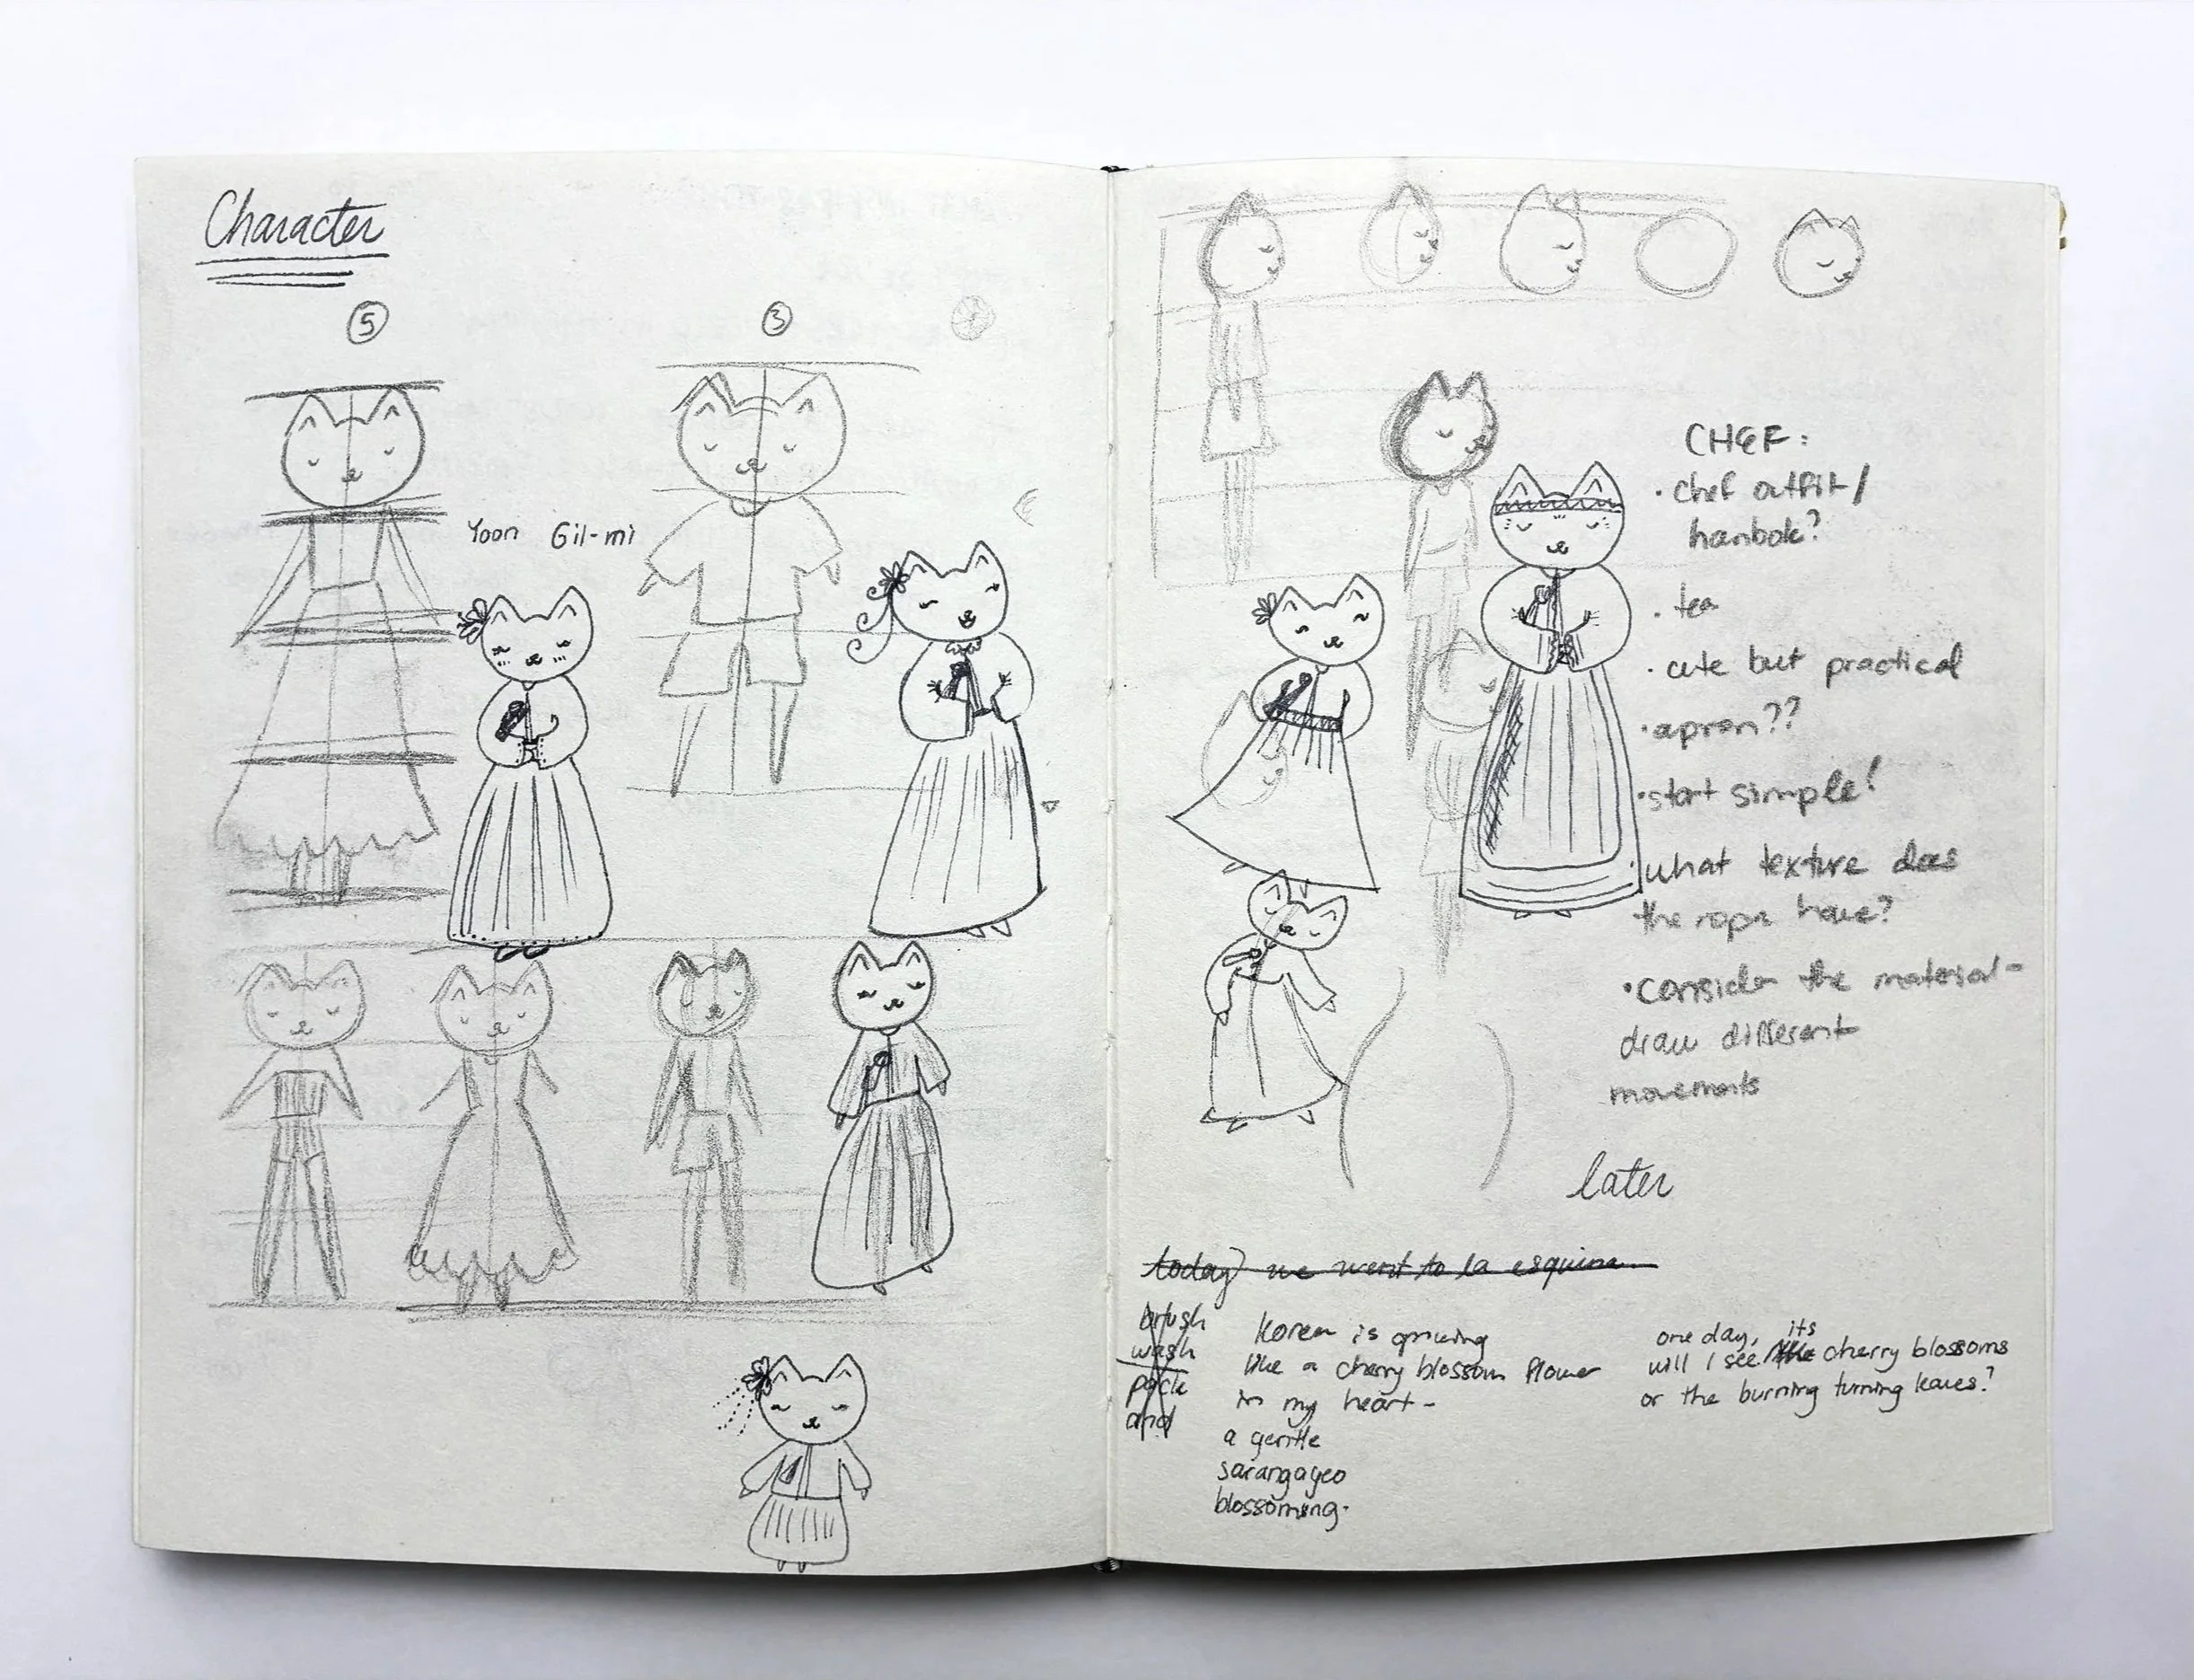 Character
5
3
Yoon Gil-mi
CHEF:
• chef outfit/
hanbok?
• tea
• cute but practical
• apron??
• start simple!
• what texture does
the ropa have?
• consider the material -
draw different
movements
later
today we went to la esquina...
brush
wash
pack
and
Korea is growing
like a cherry blossom flower
in my heart -
a gentle
sarangayeo
blossoming.
one day, its
will I see the cherry blossoms
or the burning turning leaves?